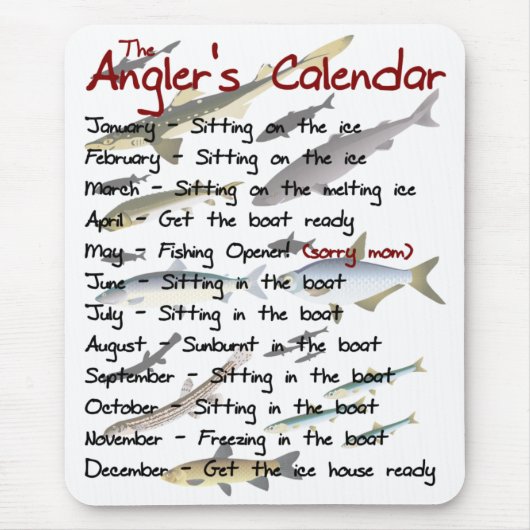 The
Angler's Calendar
January - Sitting on the ice
February - Sitting on the ice
March - Sitting on the melting ice
April - Get the boat ready
May - Fishing Opener! (sorry mom)
June - Sitting in the boat
July - Sitting in the boat
August - Sunburnt in the boat
September - Sitting in the boat
October - Sitting in the boat
November - Freezing in the boat
December - Get the ice house ready